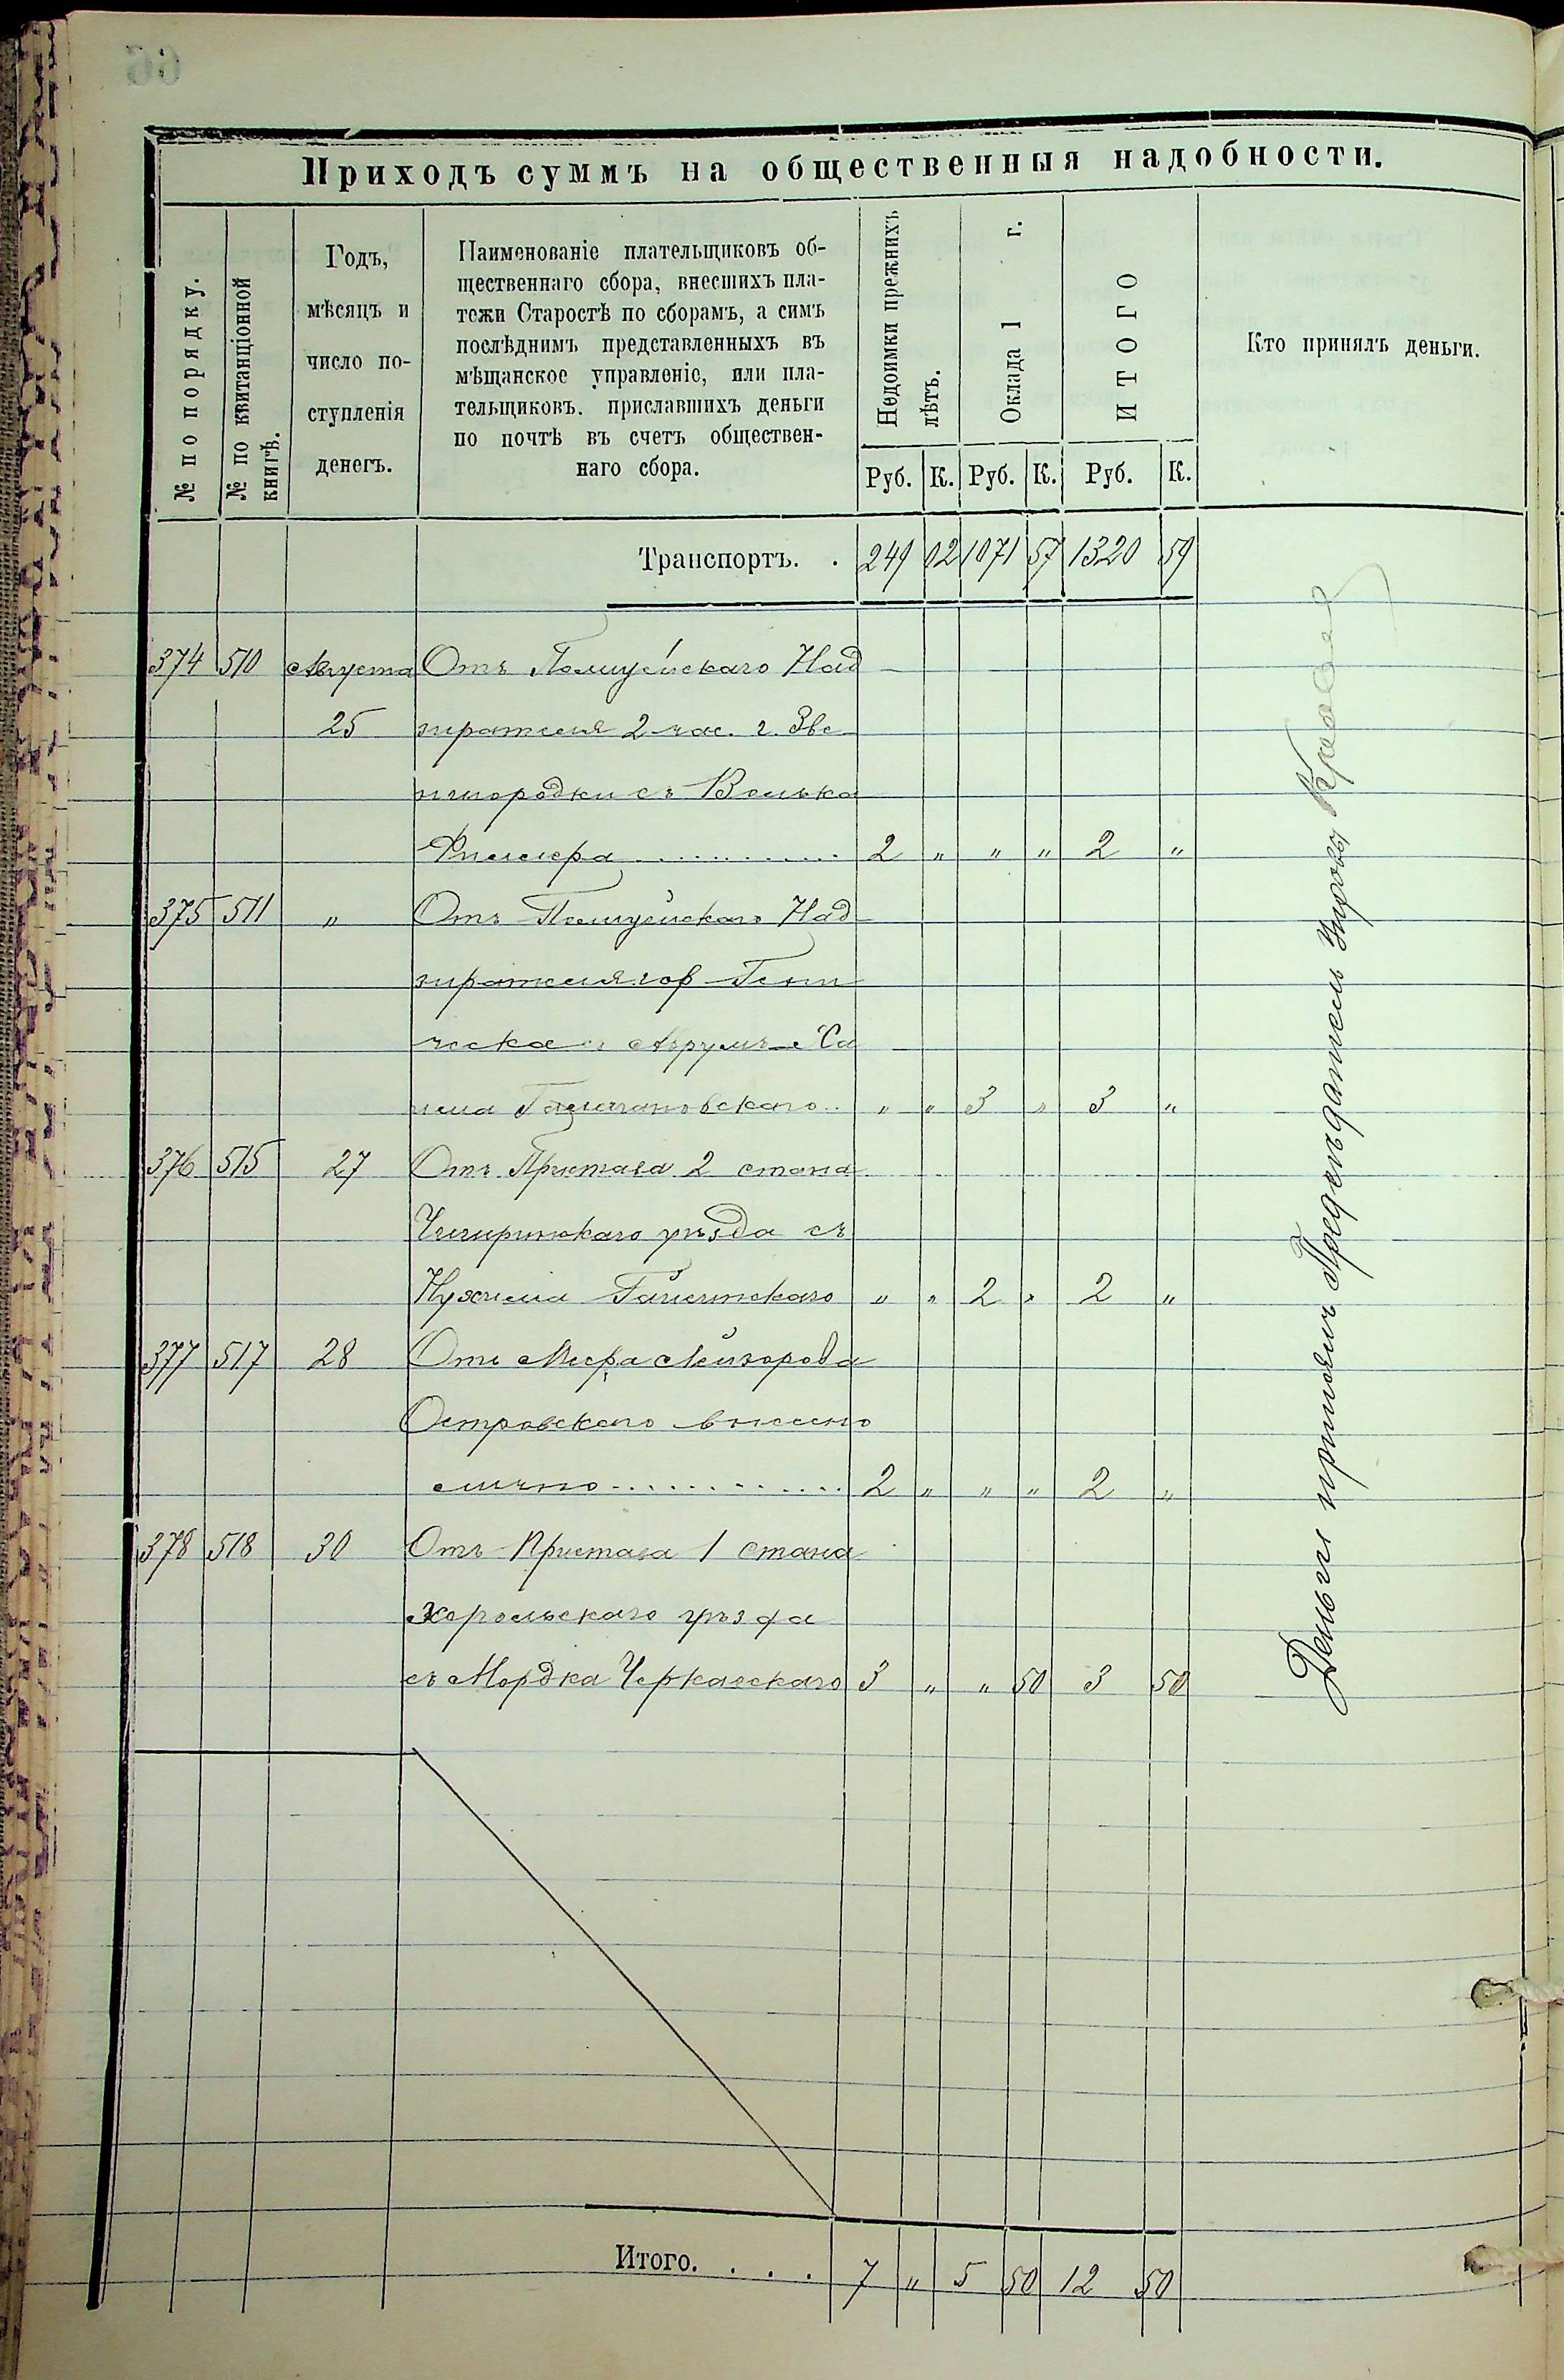 Приходъ суммъ на общественныя надобности.
№ по порядку.
№ по квитанціонной
книгѣ.
Годъ,
мѣсяцъ и
число по-
ступленія
денегъ.
Наименованіе плательщиковъ об-
щественнаго сбора, внесшихъ пла-
тежи Старостѣ по сборамъ, а симъ
послѣднимъ представленныхъ въ
мѣщанское управленіе, или пла-
тельщиковъ. приславшихъ деньги
по почтѣ въ счетъ обществен-
наго сбора.
Недоимки прежнихъ
лѣтъ.
Оклада 1 г.
ИТОГО
Кто принялъ деньги.
Руб. К. Руб. К. Руб. К.
Транспортъ. . 249 02 1071 57 1320 59
374 510 Августа Отъ Полицейскаго Над
25 зирателя 2 час. г. Зве
нигородки съ Волька
2 " " " 2 "
375 511 " Отъ Полицейскаго Над
зирателя гор Гени
ческа съ Аврумъ-Ха
" " 3 " 3 "
376 515 27 Отъ Пристава 2 стана
Чигиринскаго уѣзда съ
Нухима " " 2 " 2 "
377 517 28 Отъ
Островскаго внесено
лично 2 " " " 2 "
378 518 30 Отъ Пристава 1 стана
Хорольскаго уѣзда
съ Мордка Черкаскаго 3 " " 50 3 50
Деньги принялъ Предсѣдатель Управы
Итого. . . . 7 " 5 50 12 50